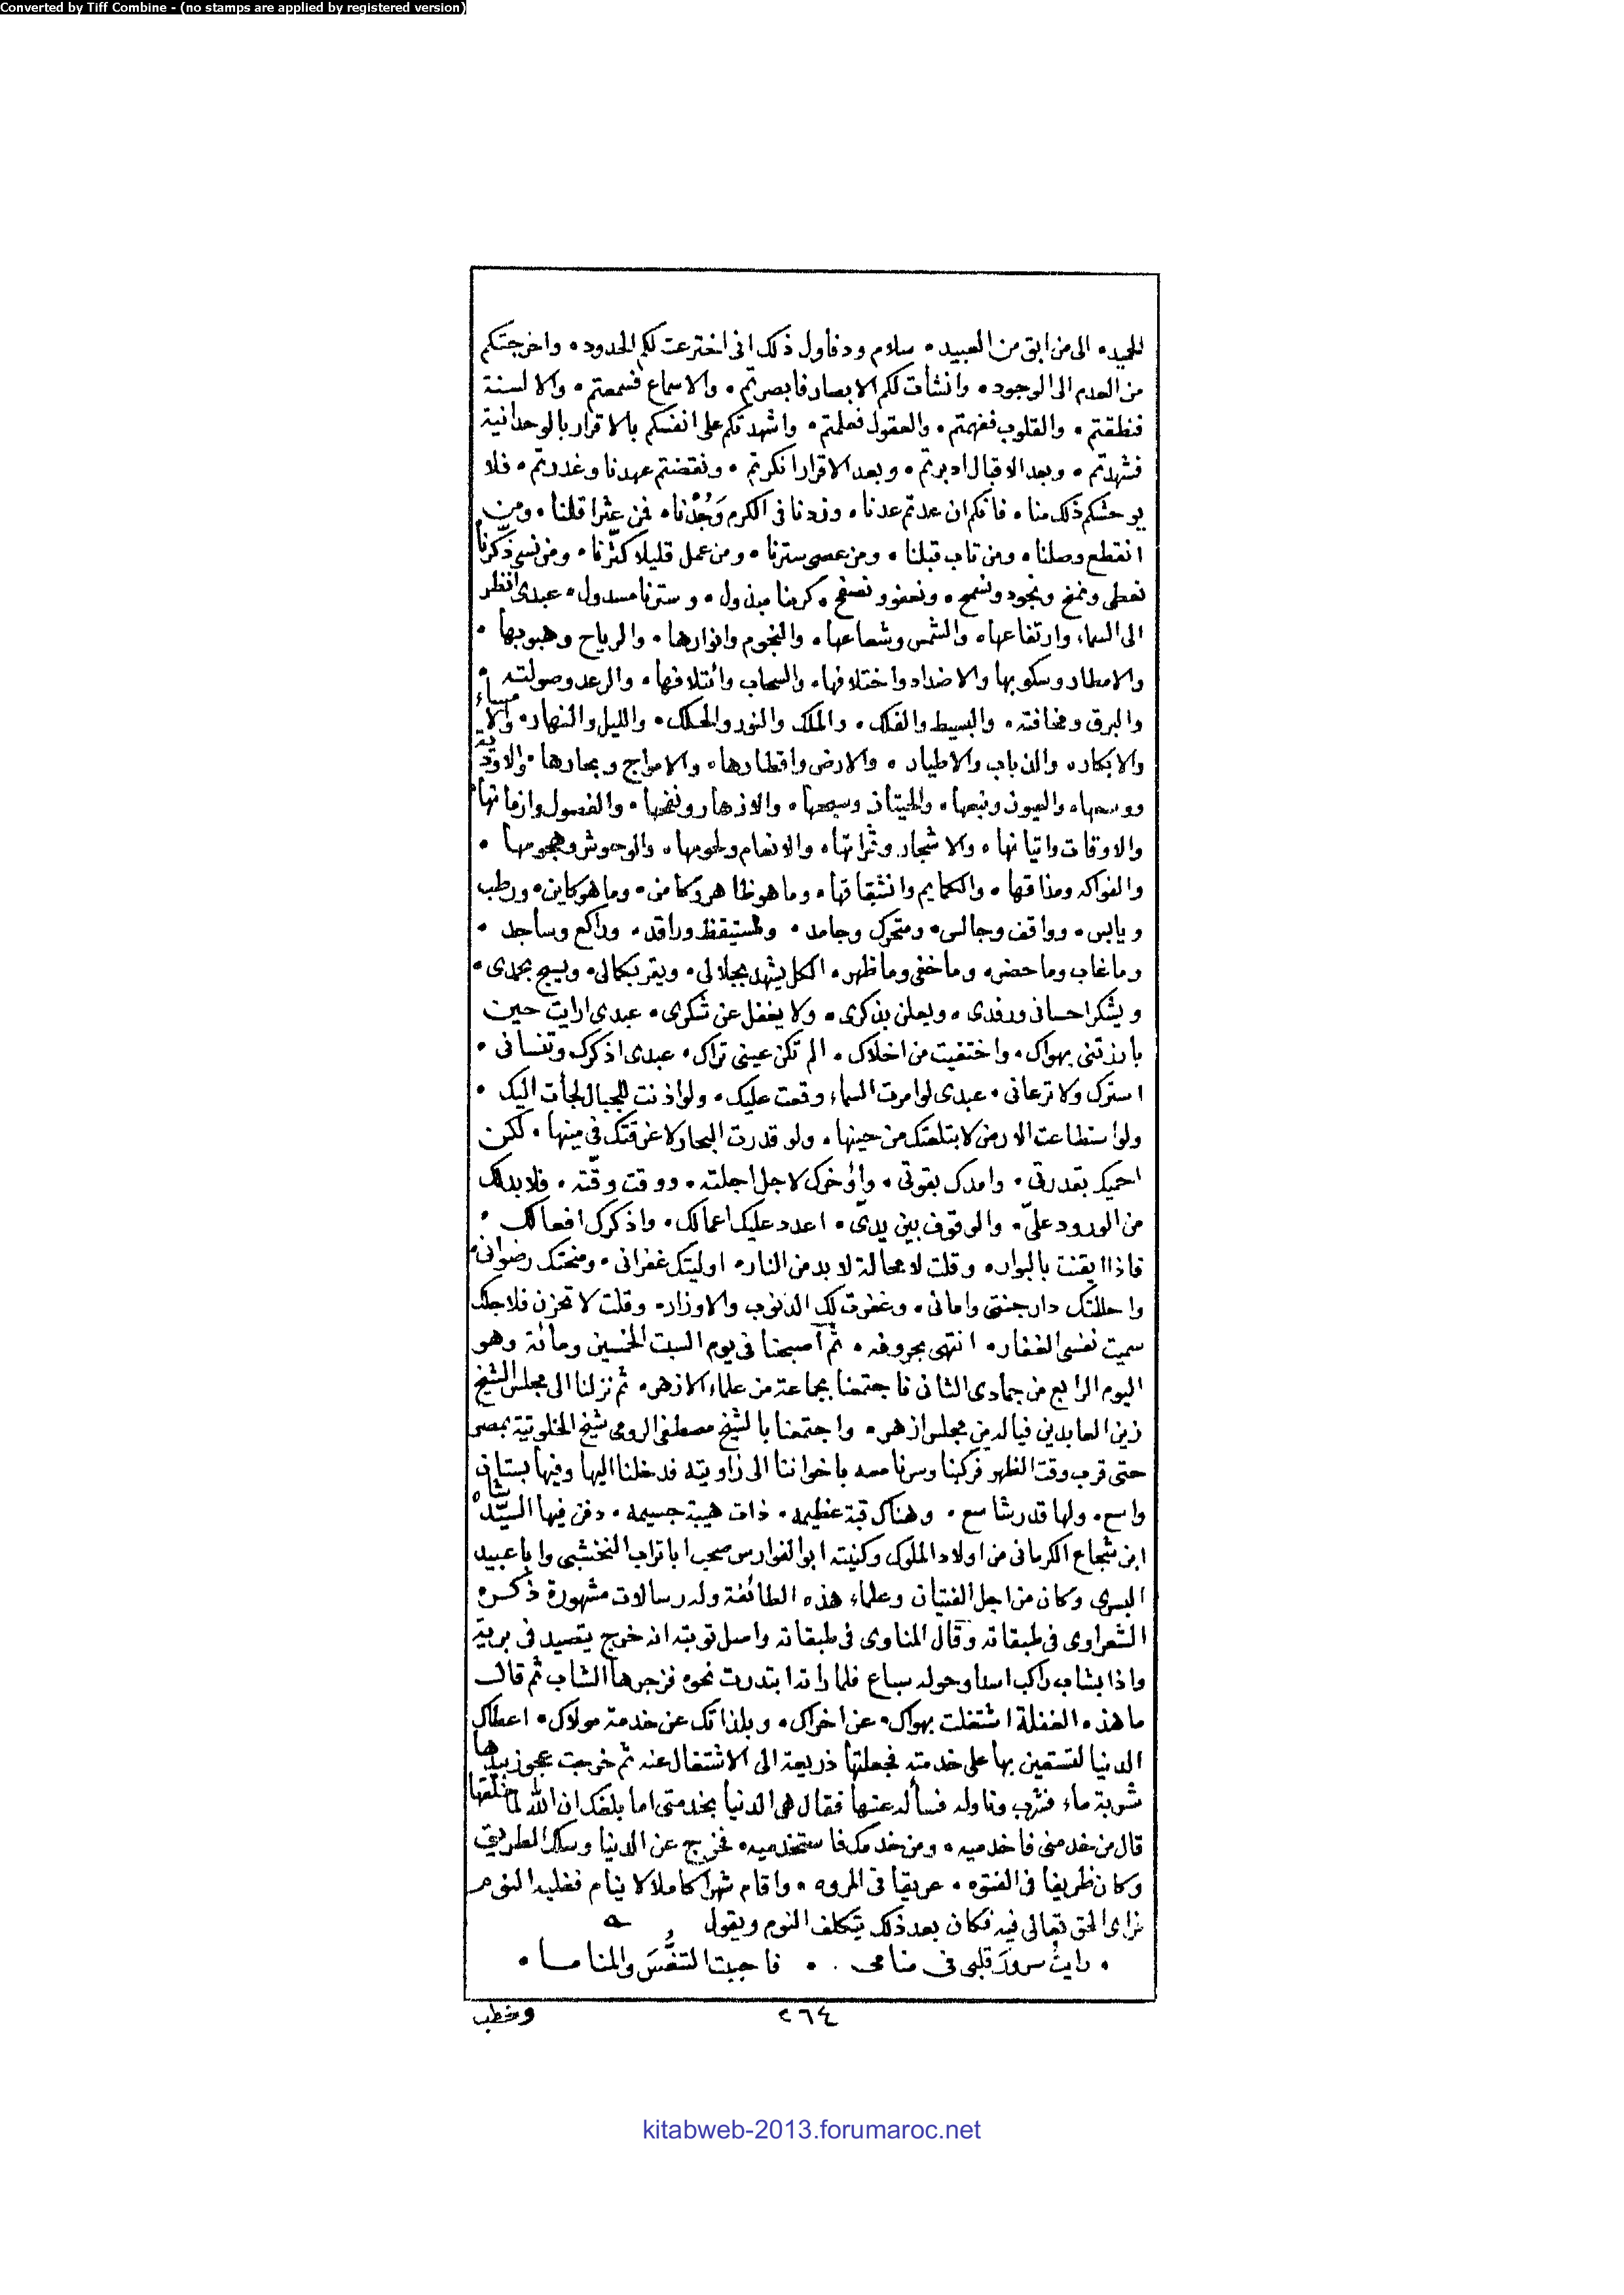 Converted by Tiff Combine - (no stamps are applied by registered version)
الحميد • الى من ابق من العبيد • سلام ود فأول ذلك انى اخترعت لكم الحدود • واخرجتكم
من العدم الى الوجود • وانشأت لكم الابصار فابصرتم • والاسماع فسمعتم • والالسنة
فنطقتم • والقلوب ففهمتم • والعقول فعلمتم • واشهدتكم على انفسكم بالاقرار بالوحدانية
فشهدتم • وبعد الاقبال ادبرتم • وبعد الاقرار انكرتم • ونقضتم عهدنا وغدرتم • فلا
يوحشكم ذلك منا • فانكم ان عدتم عدنا • وزدنا فى الكرم وَجُدْنا • فمن عثر اقلنا • ومن
انقطع وصلنا • ومن تاب قبلنا • ومن عصى سترنا • ومن عمل قليلا كثّرنا • ومن نسى ذكّرنا
نعطى ونمنح ونجود ونسمح • ونعفو ونصفح • كرمنا مبذول • وسترنا مسدول • عبدى انظر
الى السماء وارتفاعها • والشمس وشعاعها • والنجوم وانوارها • والرياح وهبوبها •
والامطار وسكوبها والاضداد واختلافها • والسحاب وائتلافها • والرعد وصولته •
والبرق ومخافته • والبسيط والفلك • والملك والنور والحلك • والليل والنهار • والامساء
والابكار • والذباب والاطيار • والارض واقطارها • والامواج وبحارها • والاودية
ووسعها • والعيون ونبعها • والحيتان وسبحها • والازهار ونفحها • والفصول وازمانها
والاوقات واتيانها • والاشجار وثمراتها • والانعام ولحومها • والوحوش وهجومها •
والفواكه ومذاقها • والكمايم وانشقاقها • وما هو ظاهر وكامن • وما هو كاين • ورطب
ويابس • وواقف وجالس • ومتحرك وجامد • ومستيقظ وراقد • وراكع وساجد •
وما غاب وما حضر • وما خفى وما ظهر • الكل يشهد بجلالى • ويقر بكمالى • ويسبح بحمدى •
ويشكر احسانى ورفدى • ويعلن بذكرى • ولا يغفل عن شكرى • عبدى ارايت حين
بارزتنى بهواك • واختفيت من اخلاك • الم تكن عينى تراك • عبدى اذكرك وتنسانى •
استرك ولا ترعانى • عبدى لو امرت السماء وقعت عليك • ولو اذنت للجبال لجأت اليك •
ولو استطاعت الارض لابتلعتك من حينها • ولو قدرت البحار لاغرقتك فى مينها • لكن
احميك بقدرتى • وامدك بقوتى • وأؤخرك لاجل اجلته • ووقت وقّته • فلا بد لك
من الورود علىّ • والوقوف بين يدىّ • اعدد عليك اعمالك • واذكرك افعالك •
فاذا ايقنت بالبوار • وقلت لا محالة لا بد من النار • اوليتك غفرانى • ومنحتك رضوانى •
واحللتك دار جنتى وامانى • وغفرت لك الذنوب والاوزار • وقلت لا تحزن فلاجلك
سميت نفسى الغفار • انتهى بحروفه • ثم اصبحنا فى يوم السبت الخمسين ومائة وهو
اليوم الرابع من جمادى الثانى فاجتمعنا بجماعة من علماء الازهر • ثم نزلنا الى مجلس الشيخ
زين العابدين فياله من مجلس ازهر • واجتمعنا بالشيخ مصطفى الرومى شيخ الخلوتية بمصر
حتى قرب وقت الظهر فركبنا وسرنا معه باخواننا الى زاويته فدخلنا اليها وفيها بستان
واسع • ولها قدر شاسع • وهناك قبة عظيمه • ذات هيبة جسيمه • دفن فيها السيّد شاه
ابن شجاع الكرمانى من اولاد الملوك وكنيته ابو الفوارس صحب ابا تراب النخشبى وابا عبيد
البسرى وكان من اجل الفتيان وعلماء هذه الطائفة وله رسالات مشهورة ذكره
الشعراوى فى طبقاته وقال المناوى فى طبقاته واصل توبته انه خرج يتصيد فى برية
واذا بشاب راكب اسدا وحوله سباع فلما راته ابتدرت نحوه فزجرها الشاب ثم قال
ما هذه الغفلة اشتغلت بهواك • عن اخراك • وبلذاتك عن خدمة مولاك • اعطاك
الدنيا لتستعين بها على خدمته فجعلتها ذريعة الى الاشتغال عنه ثم خرجت عجوز بيدها
شربة ماء فشرب وناوله فسأله عنها فقال هى الدنيا بخدمتى اما بلغك ان الله لما خلقها
قال من خدمنى فاخدميه • ومن خدمك فاستخدميه • فخرج عن الدنيا وسلك الطريق
وكان ظريفا فى الفتوه • عريقا فى المروه • واقام شهرا كاملا لا ينام فغلبه النوم
فراى الحق تعالى فيه فكان بعد ذلك يتكلف النوم ويقول
• رايتُ سرورَ قلبى فى منامى • • فاحببت التنعُّسَ والمناما •
وخطب
٢٦٤
kitabweb-2013.forumaroc.net